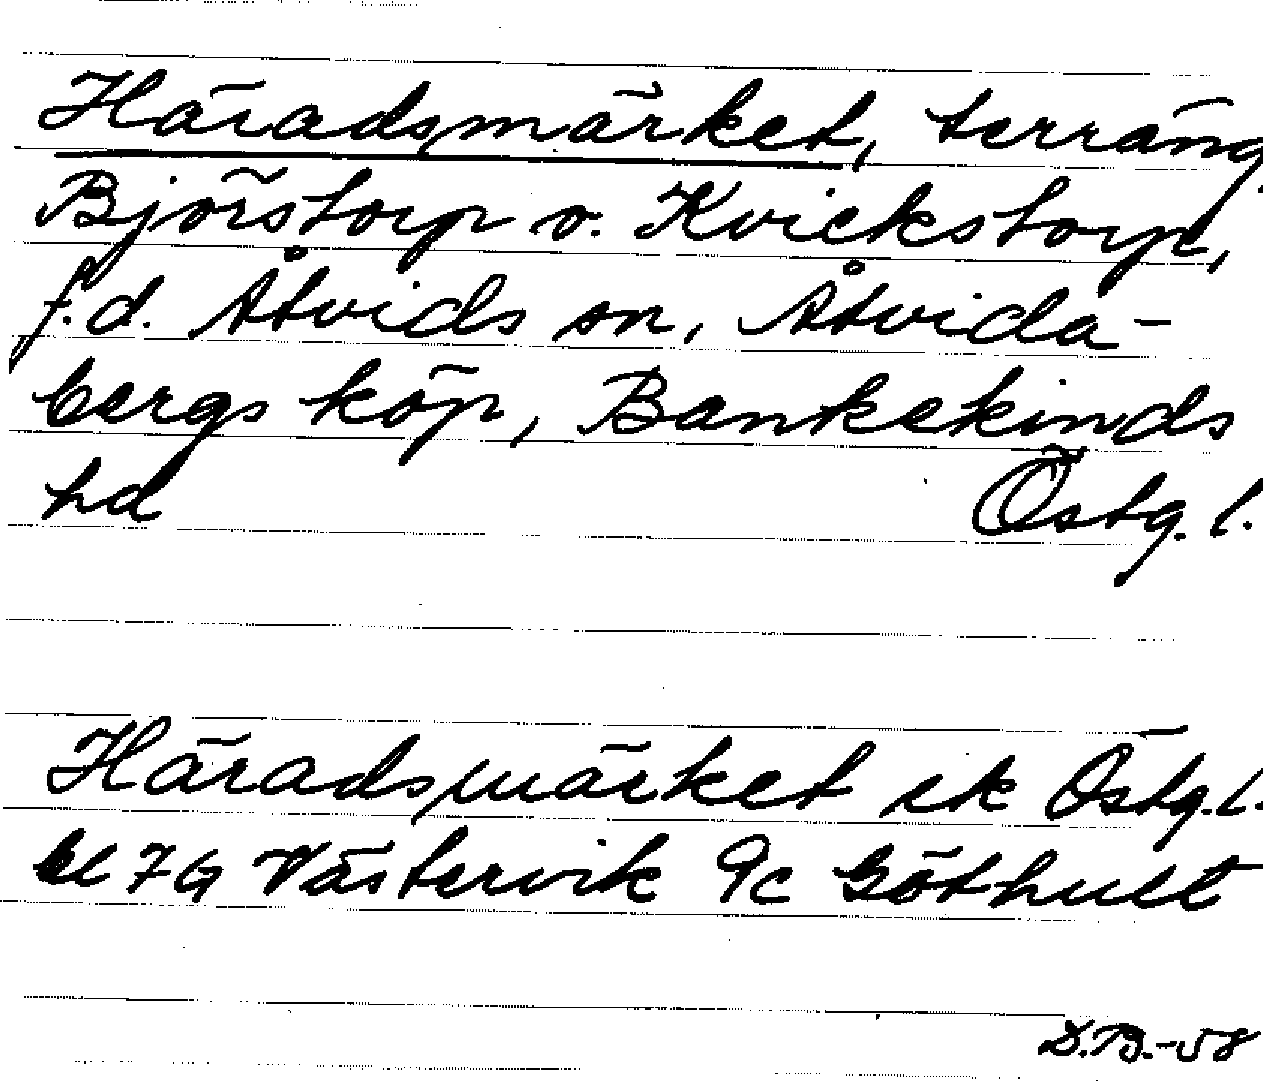 Häradsmärket, terräng,
Björstorp o. Kvickstorp,
f.d. Åtvids sn, Åtvida-
bergs köp, Bankekinds
hd Östg. l.
Häradsmärket ek Östg. l.
bl 7G Västervik 9c Göthult
D.B.-58